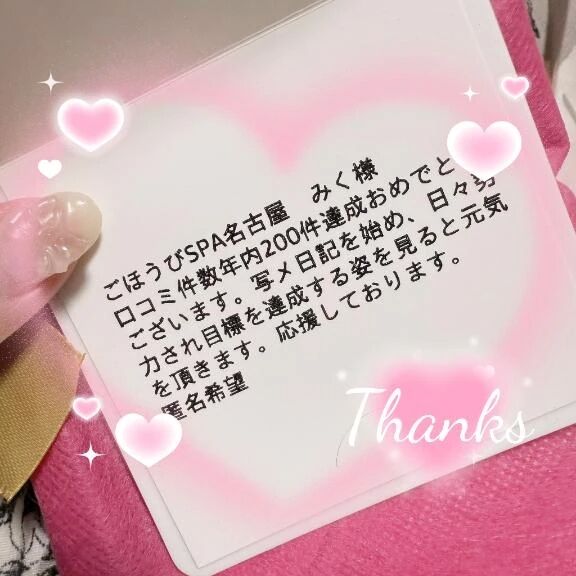 ごほうびSPA名古屋　みく様
口コミ件数年内200件達成おめでとう
ございます。写メ日記を始め、日々努
力され目標を達成する姿を見ると元気
を頂きます。応援しております。
匿名希望
Thanks